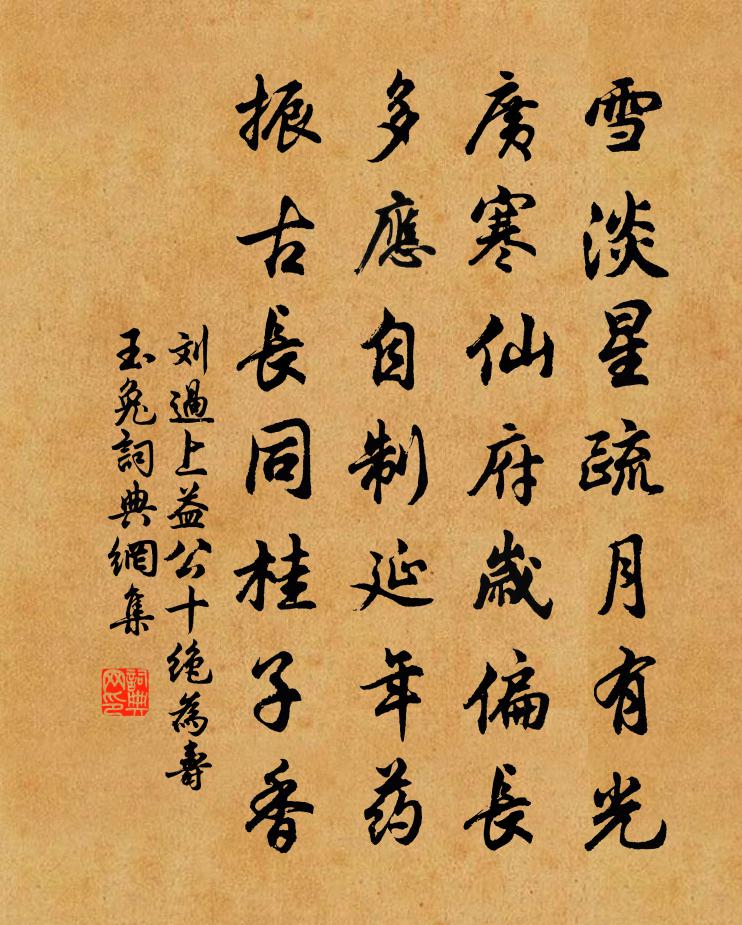 雪淡星疏月有光
廣寒仙府歲偏長
多應自制延年药
振古長同桂子香
刘過上益公十绝為壽
玉兔詞典網集
詞典网印